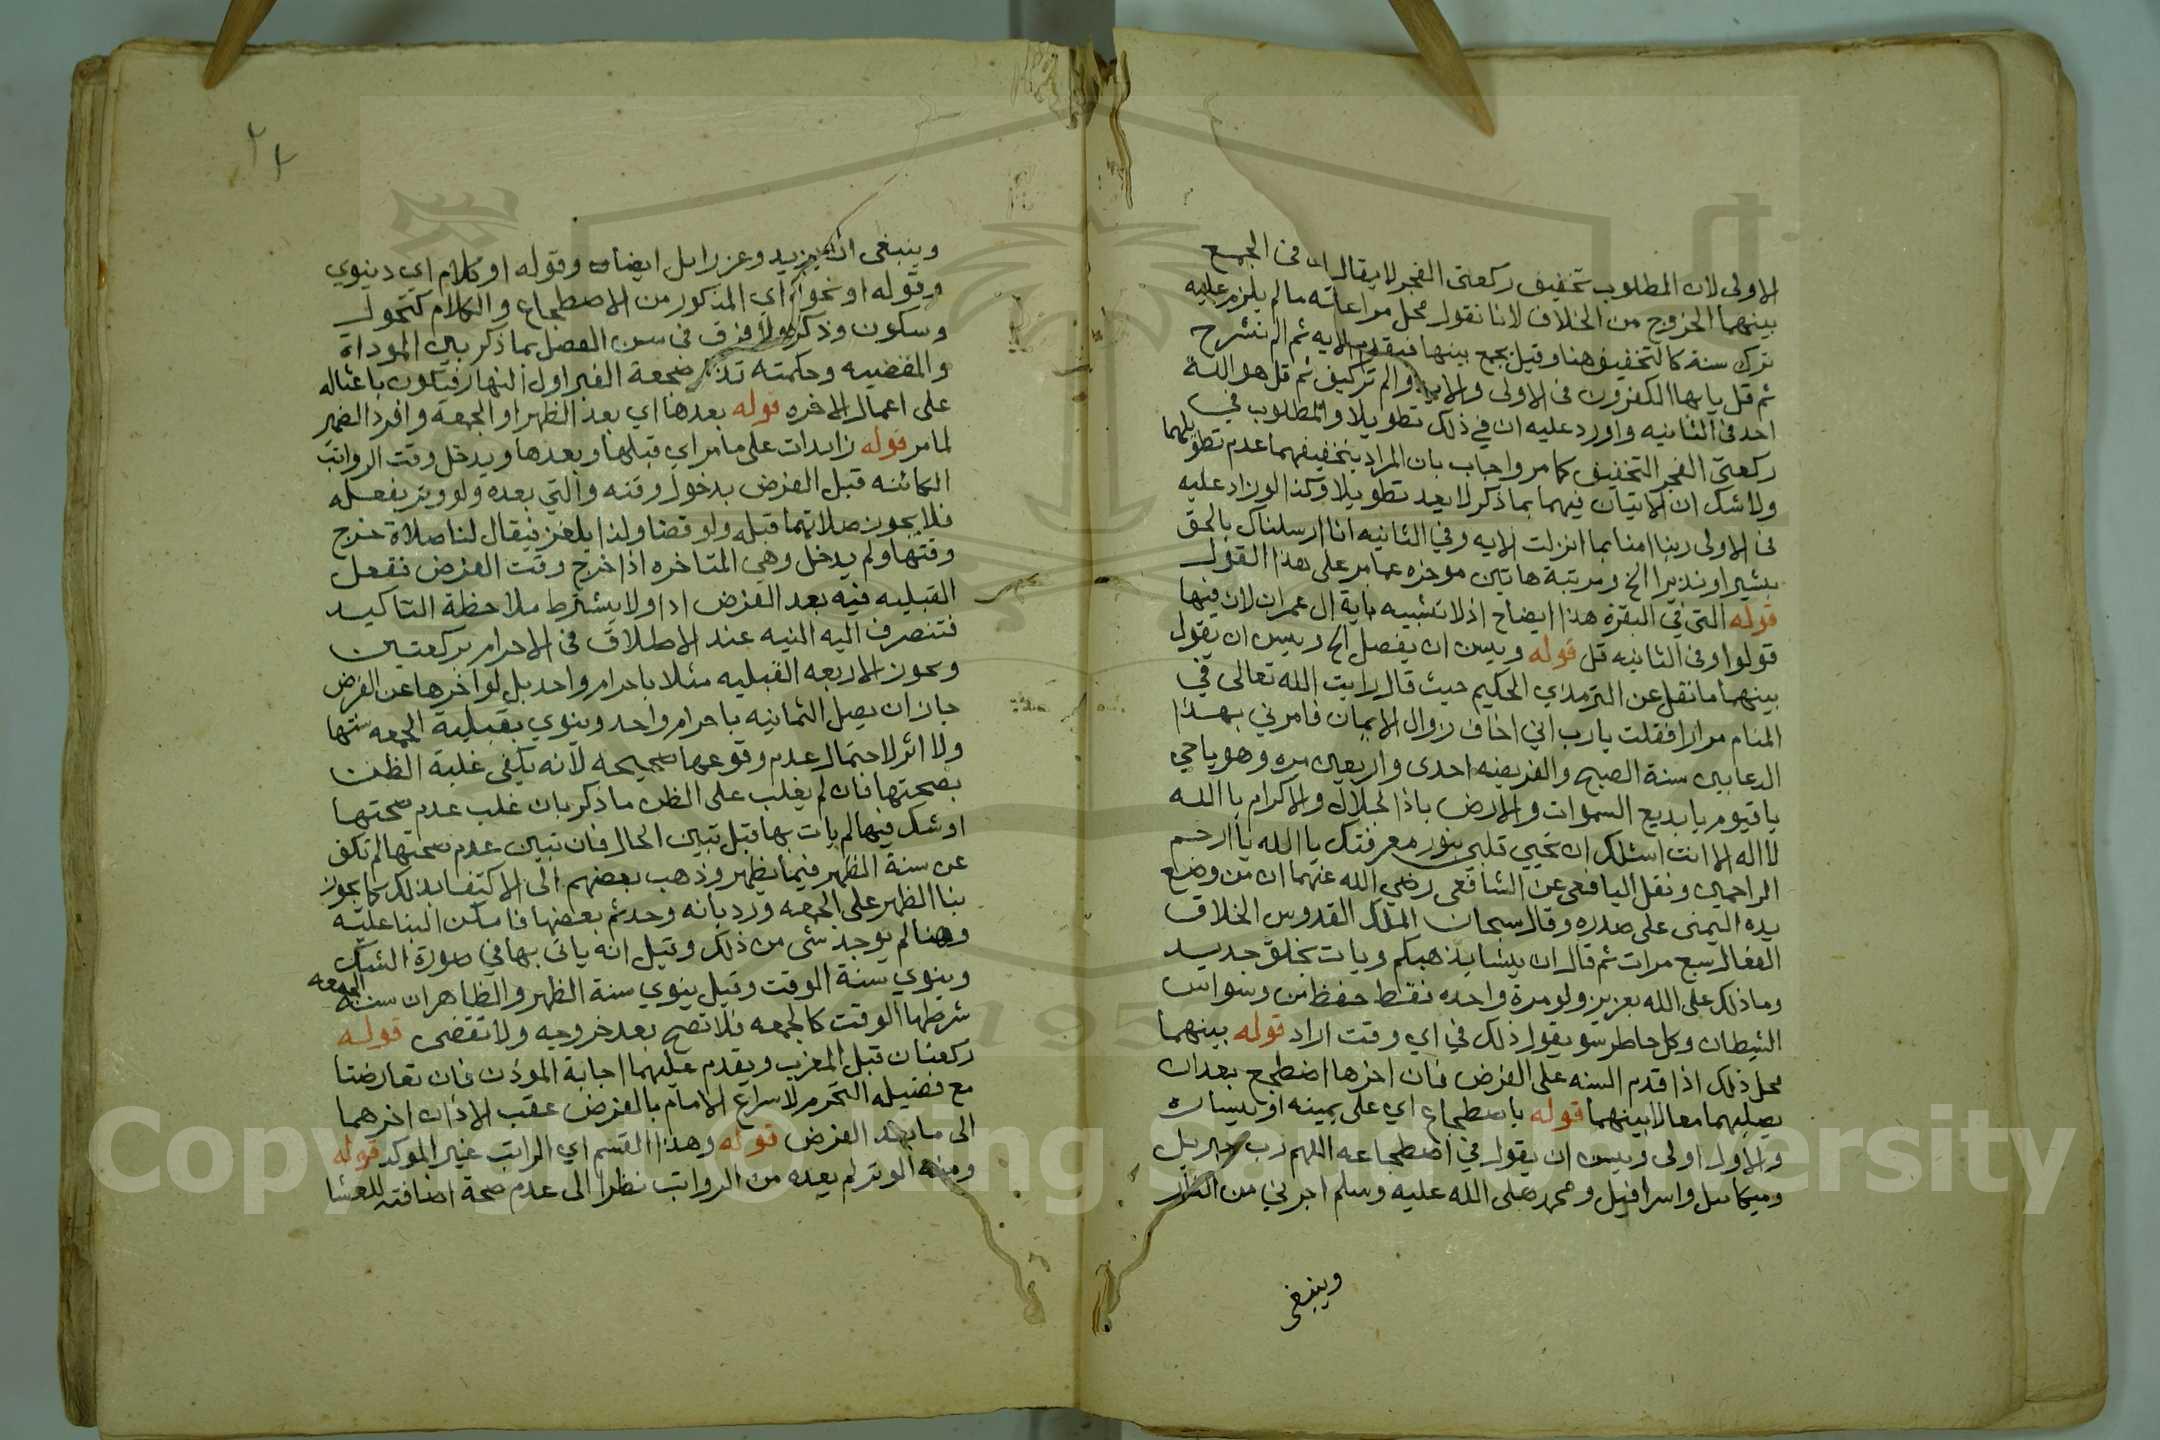 الاولى لان المطلوب تخفيف ركعتي الفجر لا يقال ان في الجمع
بينهما الخروج من الخلاف لانا نقول محل مراعاته ما لم يلزم عليه
ترك سنة كالتخفيف هنا وقيل يجمع بينها فيقدم الايه ثم الم نشرح
ثم قل يا يها الكفرون في الاولى والايه والم تركيف ثم قل هو الله
احد في الثانيه واورد عليه ان في ذلك تطويلا والمطلوب في
ركعتي الفجر التخفيف كما مر واجاب بان المراد بتخفيفهما عدم تطويلهما
ولا شك ان الاتيان فيهما بما ذكر لا يعد تطويلا وكذا لو زاد عليه
في الاولى ربنا امنا بما انزلت الايه وفي الثانيه انا ارسلناك بالحق
بشيرا ونذيرا الخ ومرتبة هاتين موخره عما مر على هذا القول
قوله التي في البقرة هذا ايضاح اذ لا تشبيه باية ال عمران لان فيها
قولوا وفي الثانيه قل قوله ويسن ان يفصل الخ ويسن ان يقول
بينهما ما نقل عن الترمذي الحكيم حيث قال رايت الله تعالى في
المنام مرارا فقلت يا رب اني اخاف زوال الايمان فامرني بهذا
الدعا بين سنة الصبح والفريضه احدى واربعين مره وهو يا حي
يا قيوم يا بديع السموات والارض ياذا الجلال والاكرام يا الله
لا اله الا انت اسئلك ان تحيي قلبي بنور معرفتك يا الله يا ارحم
الراحمين ونقل اليافعي عن الشافعي رضي الله عنهما ان من وضع
يده اليمنى على صدره وقال سبحان الملك القدوس الخلاق
الفعال سبع مرات ثم قال ان يشا يذهبكم ويات بخلق جديد
وما ذلك على الله بعزيز ولو مرة واحده فقط حفظ من وسواس
الشيطان وكل خاطر سو يقول ذلك في اي وقت اراد قوله بينهما
محل ذلك اذا قدم السنه على الفرض فان اخرها اضطجع بعد ان
يصليهما معا لا بينهما قوله باضطجاع اي على يمينه او يساره
والاول اولى ويسن ان يقول في اضطجاعه اللهم رب جبريل
وميكاىىل واسرافيل ومحمد صلى الله عليه وسلم اجرني من النار
وينبغي
وينبغي ان يزيد وعزرايل ايضا وقوله او كلام اي دنيوي
وقوله او نحو اي المذكور من الاضطجاع والكلام كتحول
وسكون وذكر ولا فرق في سن الفصل بما ذكر بين الموداة
والمقضيه وحكمته تذكر ضجعة القبر اول النهار فيكون باعثا له
على اعمال الاخره قوله بعدها اي بعد الظهر او الجمعة وافرد الضمير
لما مر قوله زايدات على ما مر اي قبلها وبعدها ويدخل وقت الرواتب
الكائنه قبل الفرض بدخول وقته والتي بعده ولو وتر بفعله
فلا يجوز صلاتهما قبله ولو قضا ولذا يلغز فيقال لنا صلاة خرج
وقتها ولم يدخل وهي المتاخره اذا خرج وقت الفرض فتفعل
القبليه فيه بعد الفرض ادا ولا يشترط ملاحظة التاكيد
فتنصرف اليه النيه عند الاطلاق في الاحرام بركعتين
ويجوز الاربعه القبليه مثلا باحرام واحد بل لو اخرها عن الفرض
جاز ان يصل الثمانيه باحرام واحد وينوي بقبلية الجمعه سنتها
ولا اثر لاحتمال عدم وقوعها صحيحه لانه يكفي غلبة الظن
بصحتها فان لم يغلب على الظن ما ذكر بان غلب عدم صحتها
او شك فيها لم يات بها قبل تبين الحال فان تبين عدم صحتها لم تكف
عن سنة الظهر فيما يظهر وذهب بعضهم الى الاكتفا بذلك كما يجوز
بنا الظهر على الجمعه ورد بانه وجد ثم بعضها فامكن البنا عليه
وهنا لم يوجد شى من ذلك وقيل انه ياتى بها في صورة الشك
وينوي سنة الوقت وقيل ينوي سنة الظهر والظاهر ان سنة الجمعه
شرطها الوقت كالجمعه فلا تصح بعد خروجه ولا تقضى قوله
ركعتان قبل المغرب ويقدم عليهما اجابة الموذن فان تعارضتا
مع فضيله التحرم لاسراع الامام بالفرض عقب الاذان اخرهما
الى ما بعد الفرض قوله وهذا القسم اي الراتب غير الموكد قوله
ومنه الوتر لم يعده من الرواتب نظرا الى عدم صحة اضافته للعشا
Copyright © King Saud University
1957